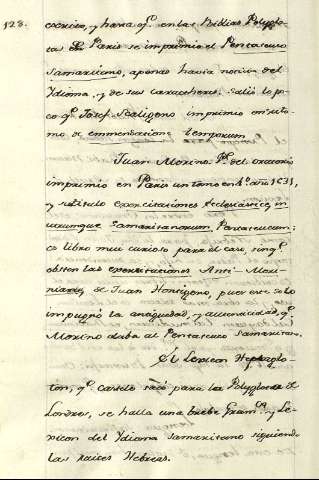 128.
escriva, y hasta q.e en las Biblias Polyglo-
tas de Paris se imprimio el Pentateuco
Samaritano, apenas havia noticia del
Idioma, y de sus caracteres. Salió lo po-
co q.e Josef Scaligero imprimio en su to-
mo de emmendatione temporum
Juan Morino P.e del oratorio
imprimio en Paris un tomo en 4.o año 1631,
y rotulolo exercitationes Ecclesiasticæ, in
utrumque Samaritanorum, Pentateucum:
libro mui curioso para el caso, sin q.e
obsten las exercitaciones Anti-Mori-
nianas de Juan Hottigero, pues este solo
impugnó la antiguedad, y autenticidad, q.e
Morino daba al Pentateuco Samaritano.
El Lexicon Heptaglo-
ton, q.e Castelo sacó para la Polyglota de
Londres, se halla una breve Gram.ca y Le-
xicon del Idioma Samaritano siguiendo
las raices Hebreas.